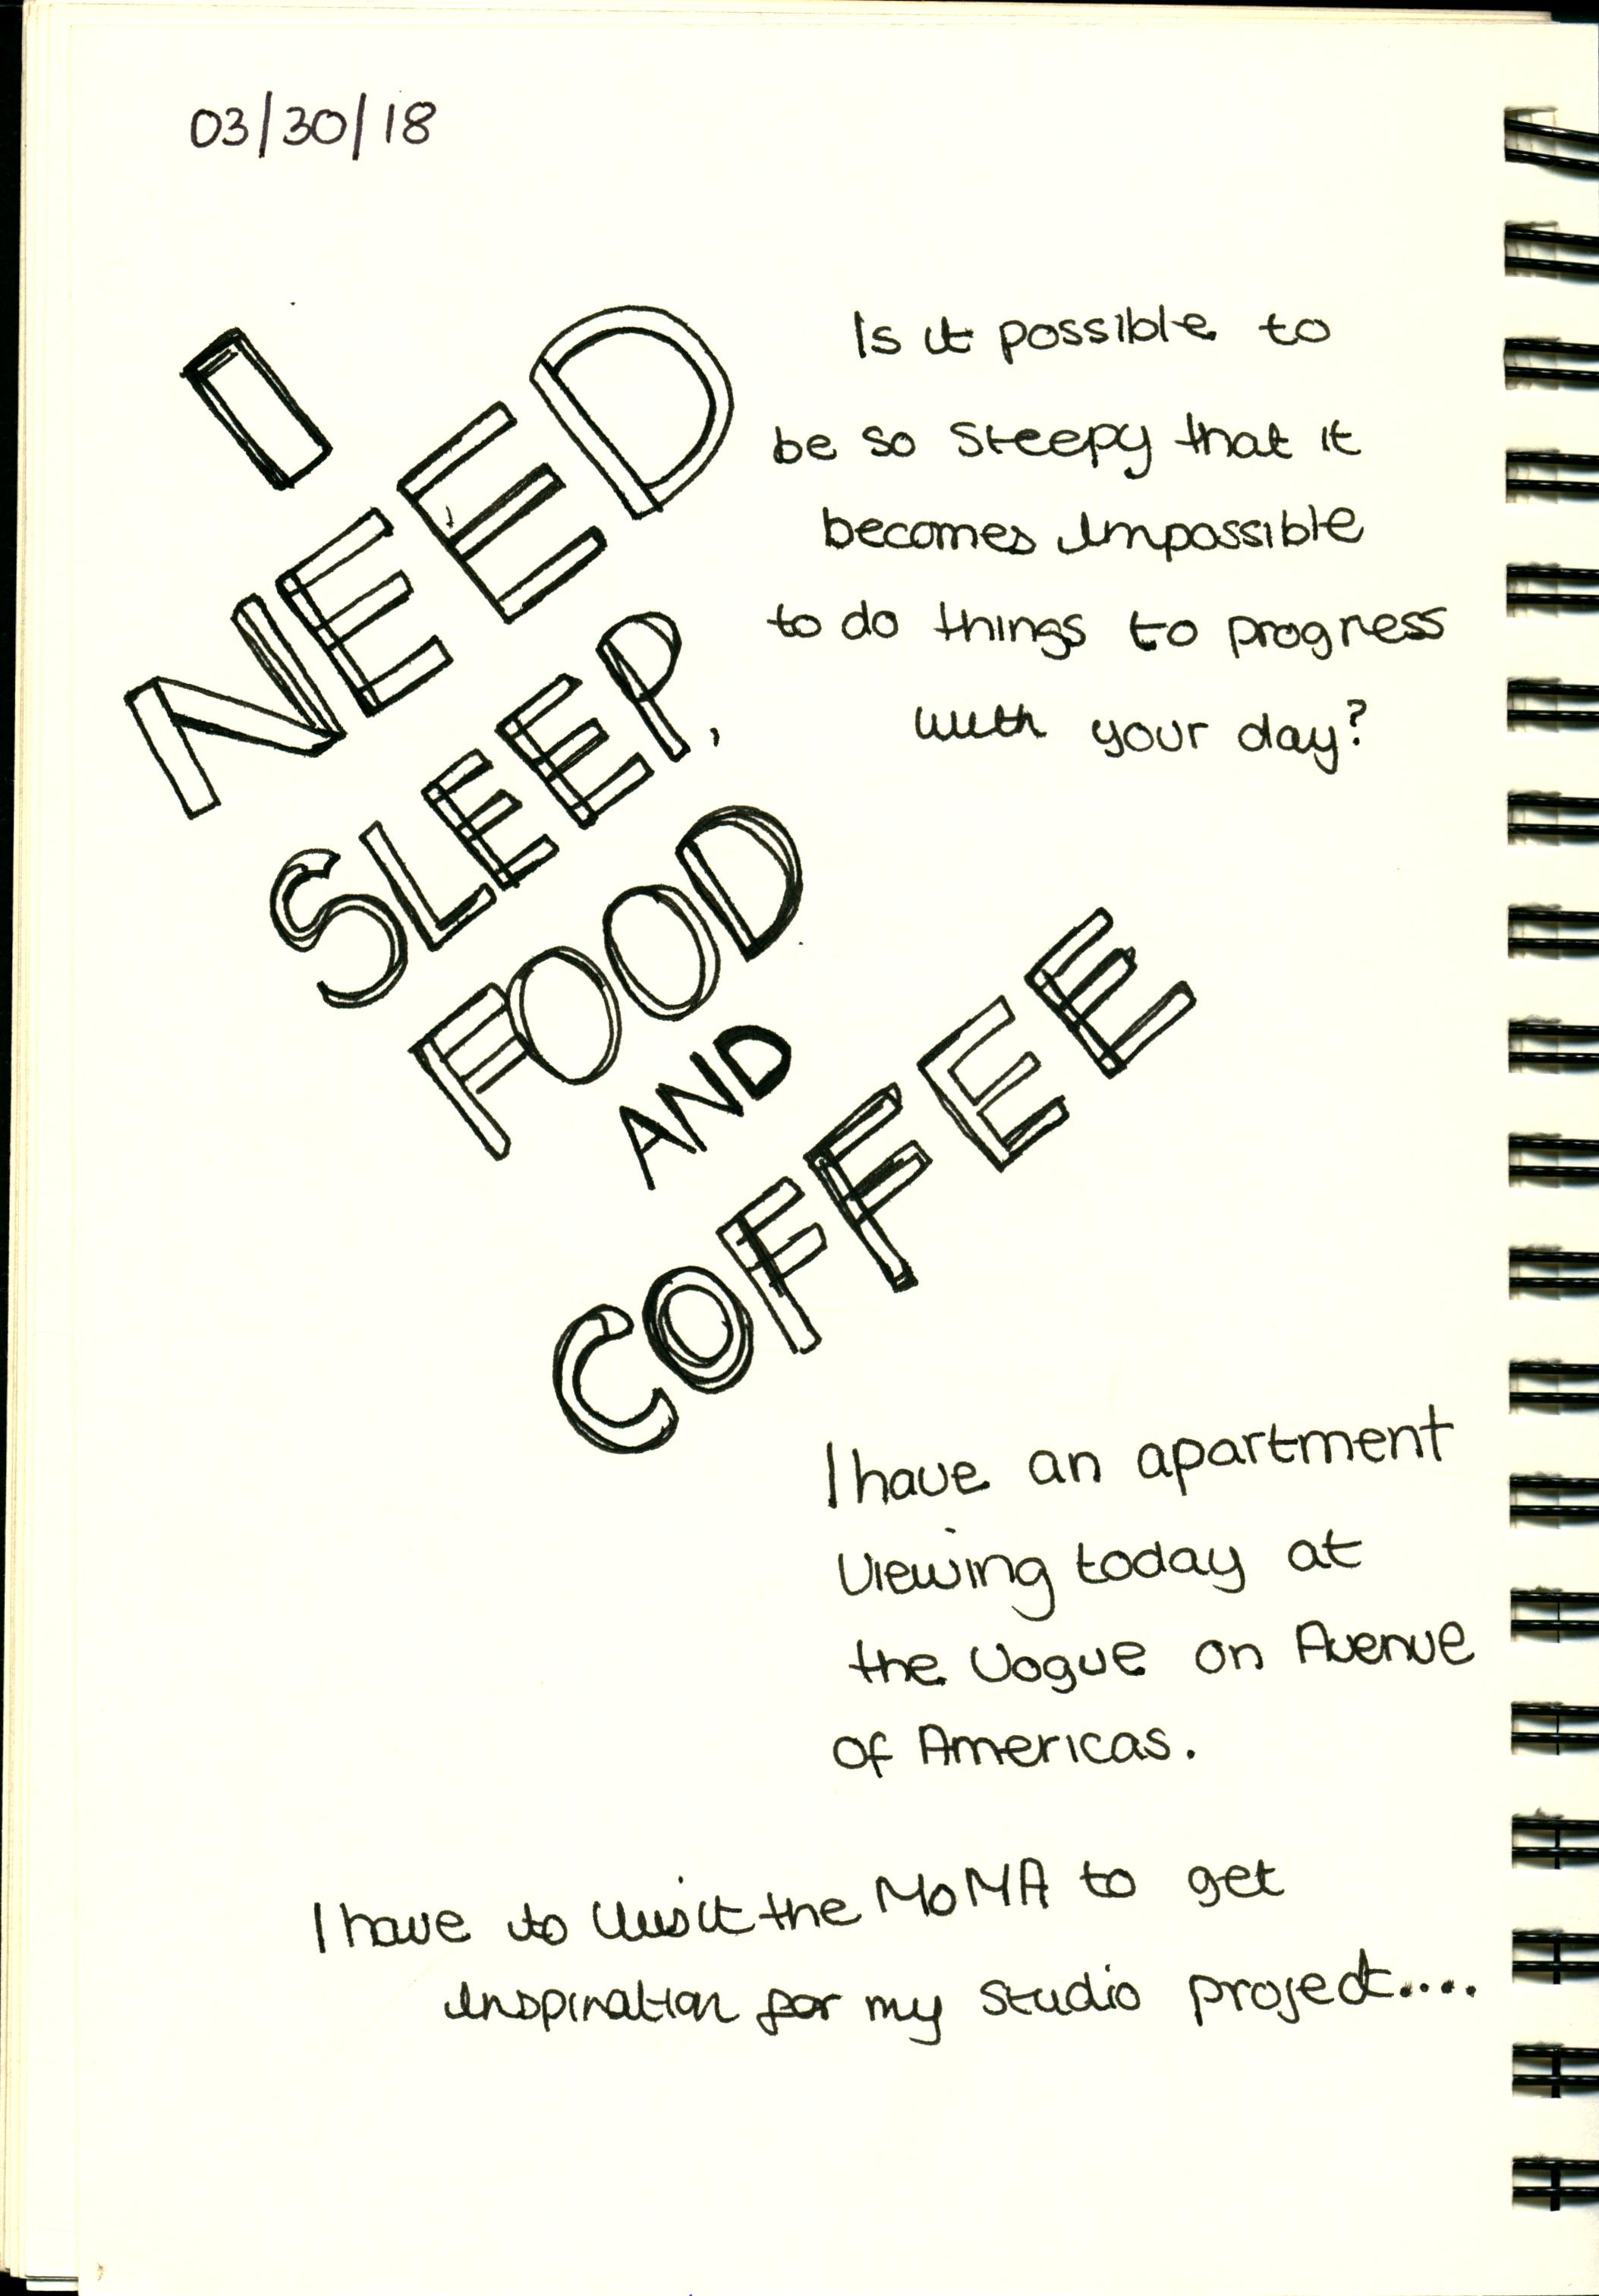 03/30/18
I
NEED
SLEEP,
FOOD
AND
COFFEE
Is it possible to
be so sleepy that it
becomes impossible
to do things to progress
with your day?
I have an apartment
viewing today at
the Vogue on Avenue
of Americas.
I have to visit the MoMA to get
inspiration for my studio project....